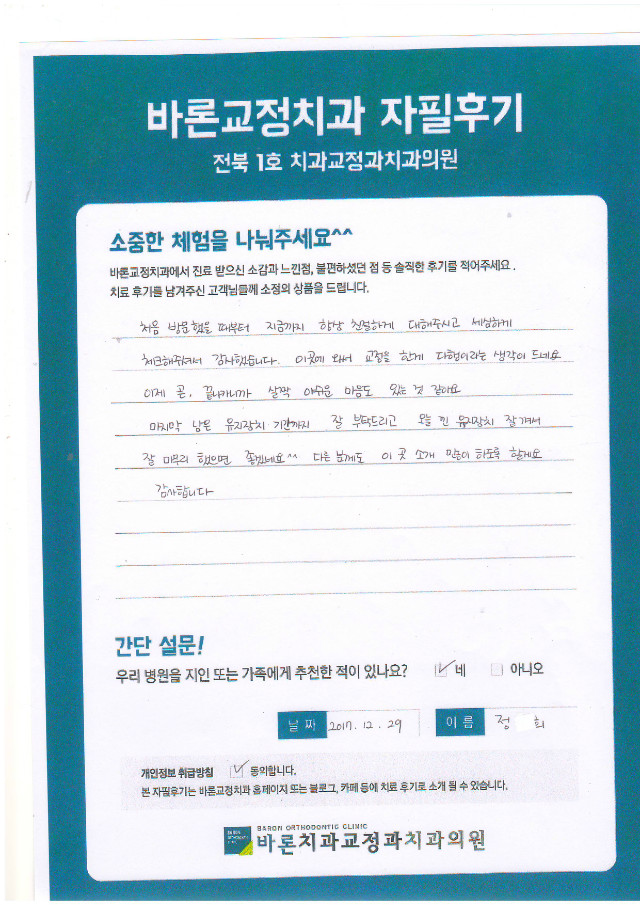 바론교정치과 자필후기
전북 1호 치과교정과치과의원
소중한 체험을 나눠주세요^^
바론교정치과에서 진료 받으신 소감과 느낀점, 불편하셨던 점 등 솔직한 후기를 적어주세요.
치료 후기를 남겨주신 고객님들께 소정의 상품을 드립니다.
처음 방문했을 때부터 지금까지 항상 친절하게 대해주시고 세심하게
체크해주셔서 감사했습니다. 이곳에 와서 교정을 한게 다행이라는 생각이 드네요
이제 곧, 끝나가니까 살짝 아쉬운 마음도 있는 것 같아요
마지막 남은 유지장치 기간까지 잘 부탁드리고 오늘 낀 유지장치 잘 껴서
잘 마무리 했으면 좋겠네요^^ 다른 분께도 이 곳 소개 많이 하도록 할게요
감사합니다
간단 설문!
우리 병원을 지인 또는 가족에게 추천한 적이 있나요? 네 아니오
날짜 2017. 12. 29 이름 정 희
개인정보 취급방침 동의합니다.
본 자필후기는 바론교정치과 홈페이지 또는 블로그, 카페 등에 치료 후기로 소개 될 수 있습니다.
BARON ORTHODONTIC CLINIC
바론치과교정과치과의원